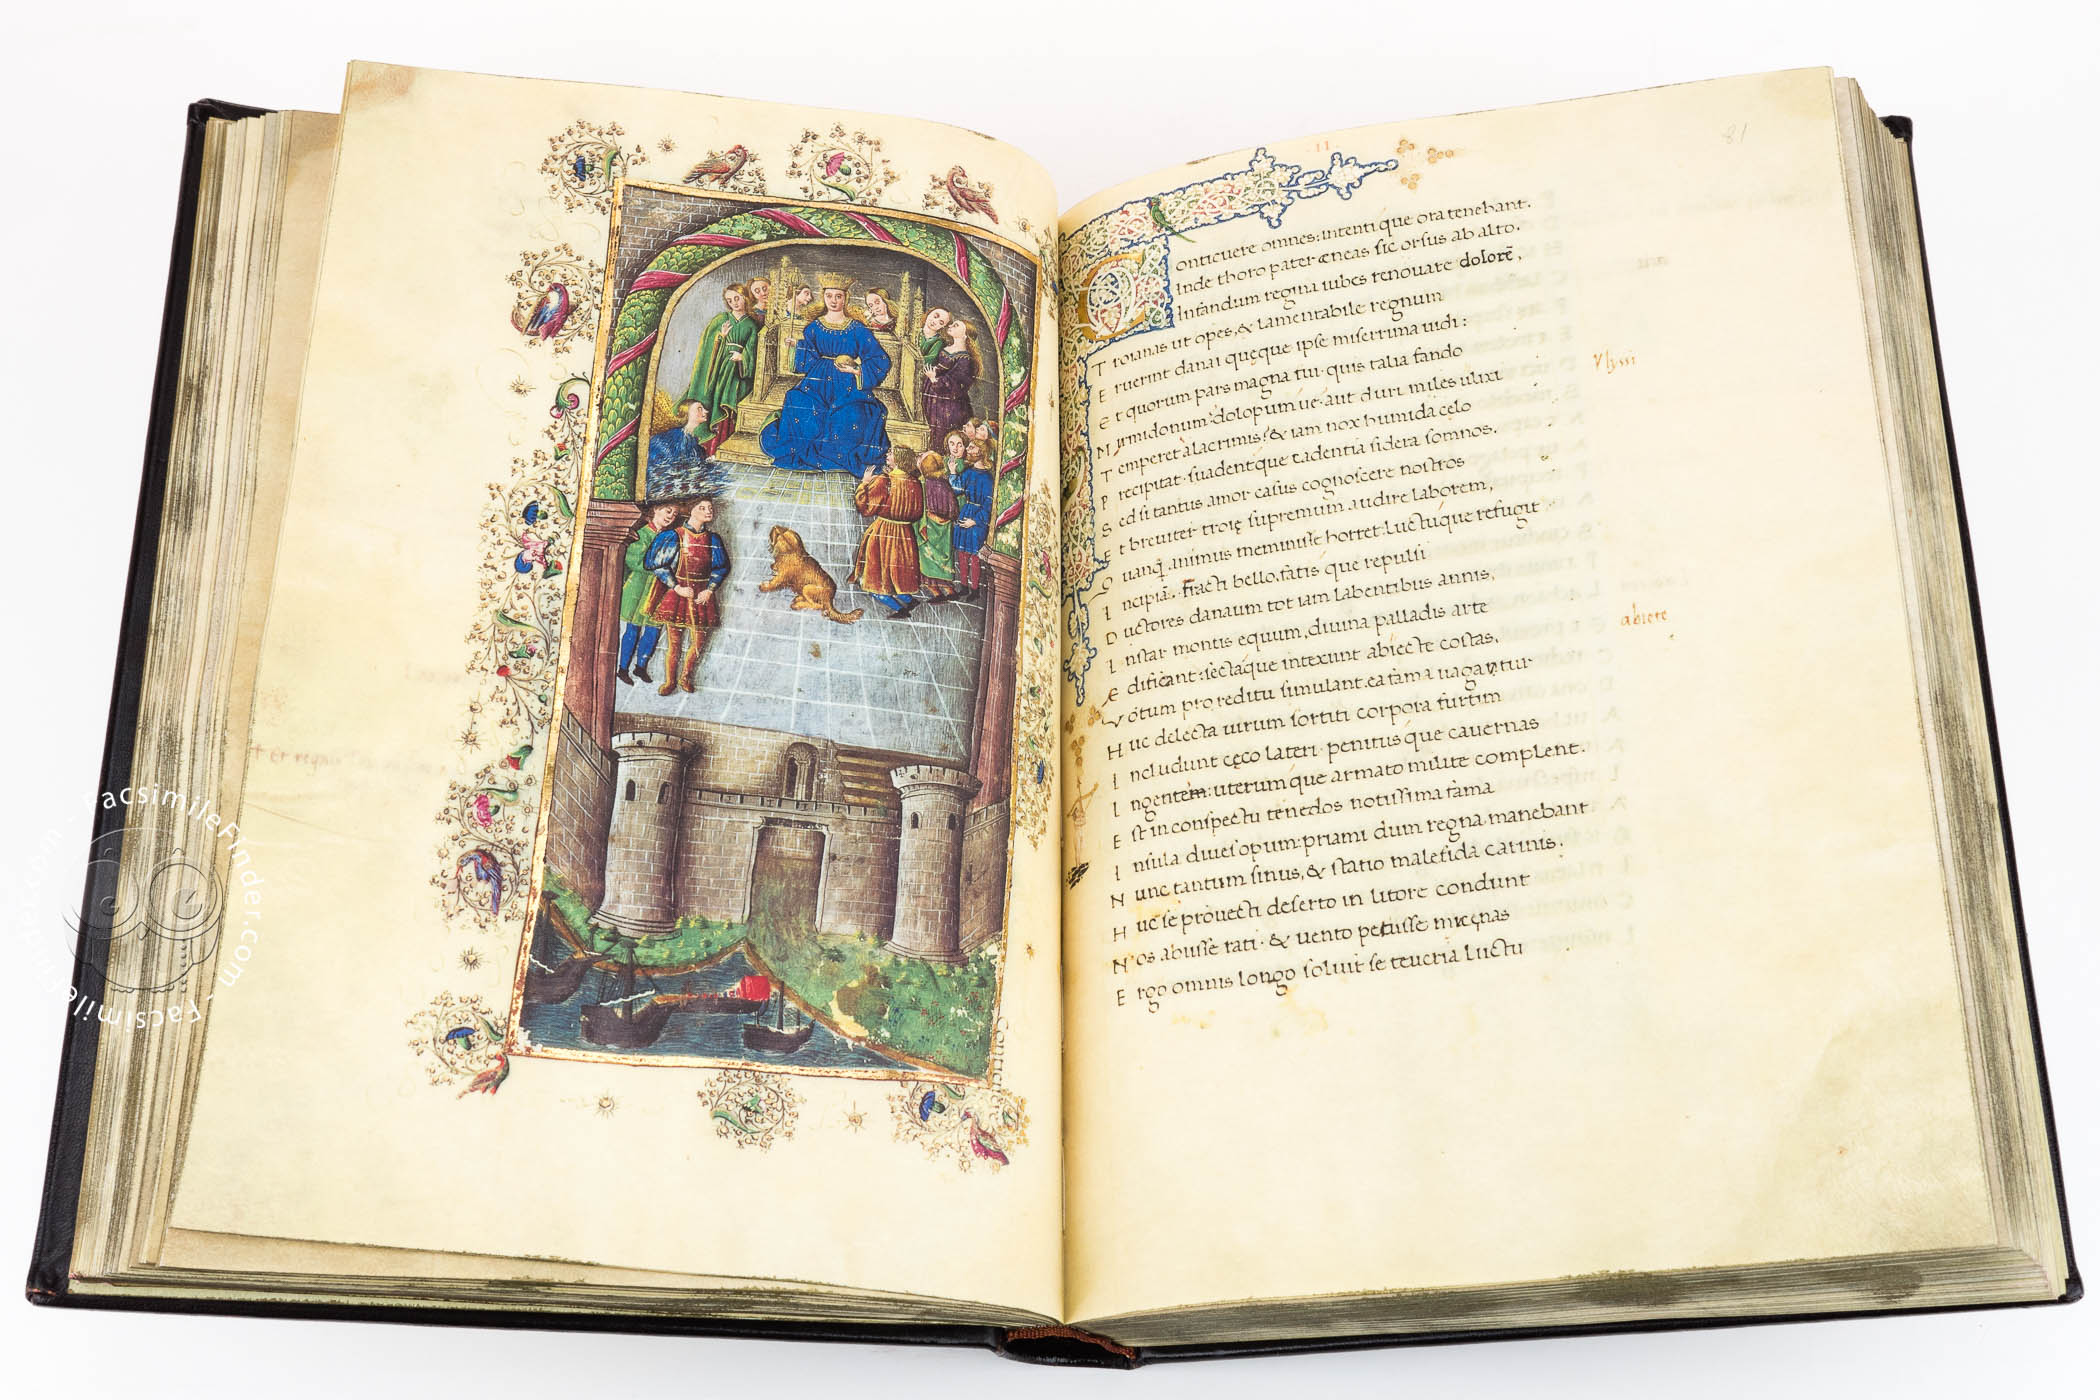 81
II
Conticuere omnes: intenti que ora tenebant.
Inde thoro pater æneas sic orsus ab alto.
Infandum regina iubes renovare dolorē,
Troianas ut opes, & lamentabile regnum
Eruerint danai quęque ipse miserrima uidi:
Et quorum pars magna fui. quis talia fando
Myrmidonum dolopum ue. aut duri miles ulixi
Temperet a lacrimis? & iam nox humida celo
Precipitat. suadentque cadentia sidera somnos.
Sed si tantus amor casus cognoscere nostros
Et breuiter troię supremum audire laborem,
Quanq̃ animus meminisse horret. luctuque refugit
Incipiā. fracti bello. fatis que repulsi
Ductores danaum tot iam labentibus annis,
Instar montis equum, diuina palladis arte
Ædificant: sectaque intexunt abiecte costas.
Votum pro reditu simulant. ea fama uagantur
Huc delecta uirum sortiti corpora furtim
Includunt cęco lateri. penitus que cauernas
Ingentem: uterum que armato milite complent.
Est in conspectu tenedos notissima fama
Insula diues opum: priami dum regna manebant.
Nunc tantum sinus, & statio malefida carinis.
Huc se prouecti deserto in litore condunt
Nos abiisse rati. & uento petiisse micęnas
Ergo omnis longo soluit se teucria luctu
Vlyssi
abiete
FacsimileFinder.com - FacsimileFinder.com